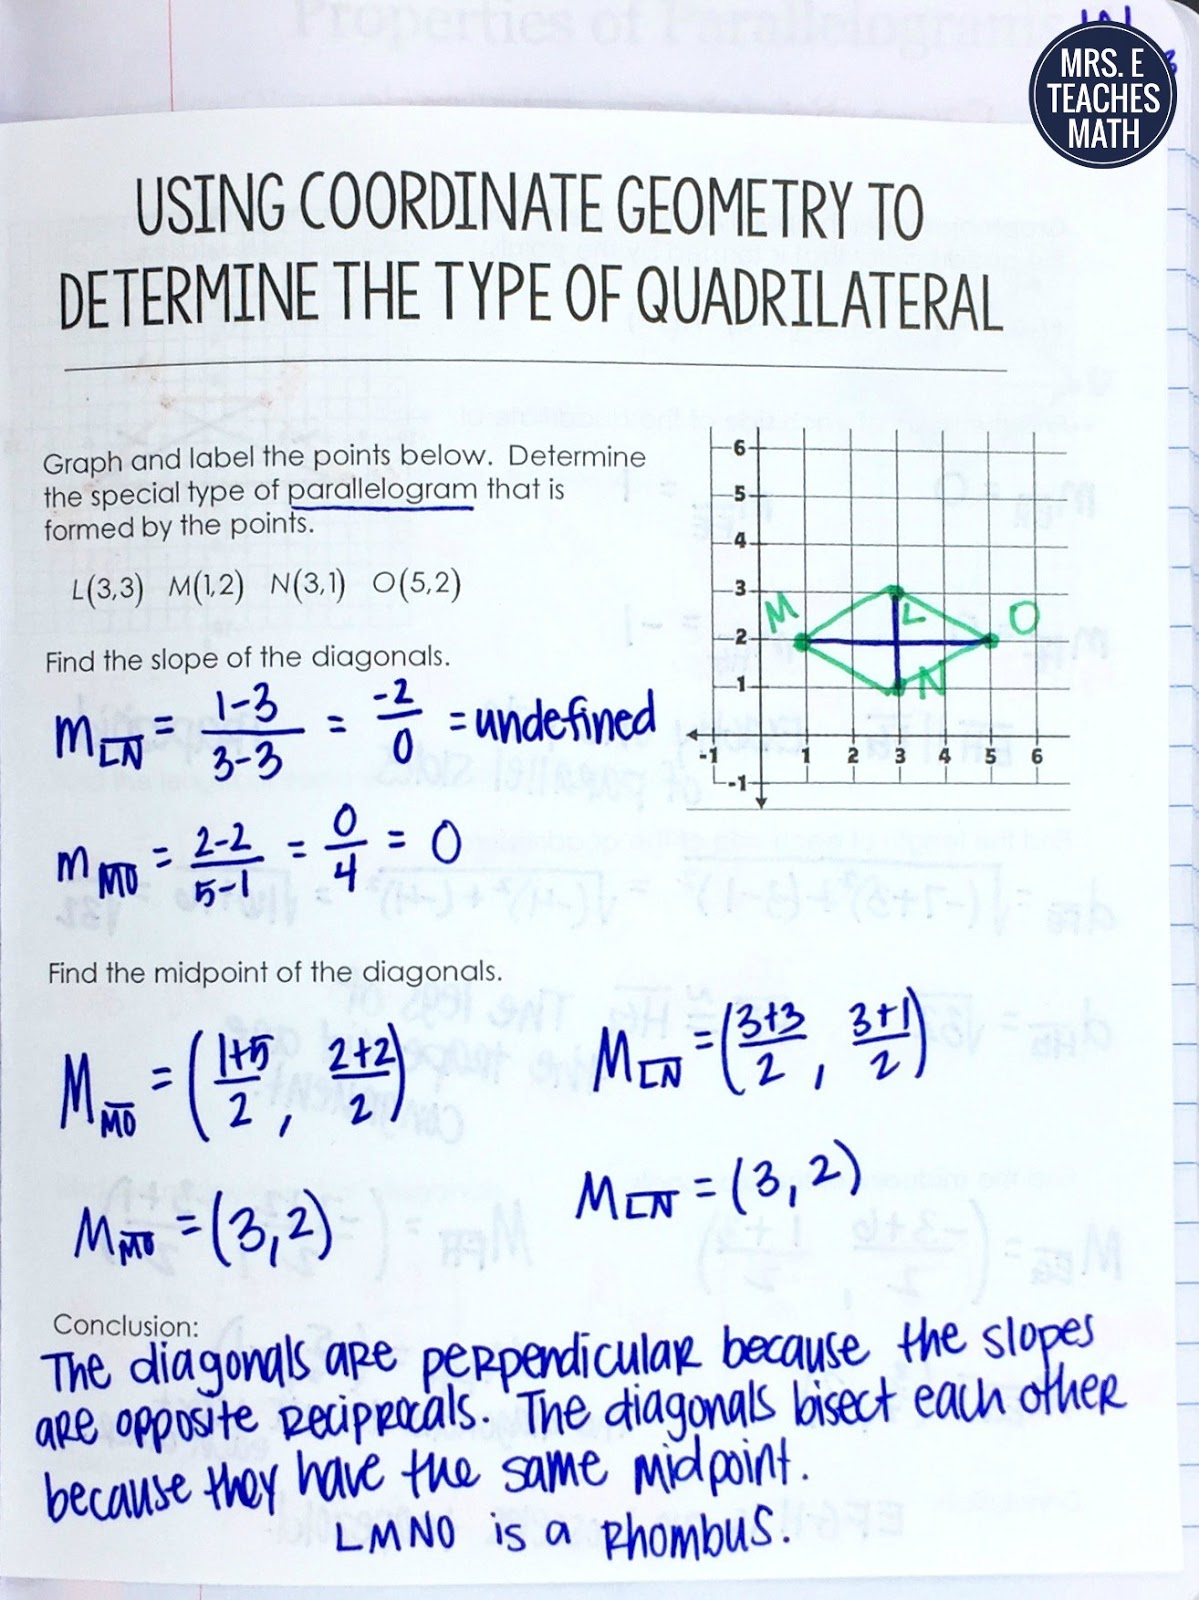 MRS. E
TEACHES
MATH
USING COORDINATE GEOMETRY TO
DETERMINE THE TYPE OF QUADRILATERAL
Graph and label the points below. Determine
the special type of parallelogram that is
formed by the points.
L(3,3) M(1,2) N(3,1) O(5,2)
6
5
4
3
2
1
-1
-1 1 2 3 4 5 6
M L O
N
Find the slope of the diagonals.
m LN = 1-3/3-3 = -2/0 = undefined
m MO = 2-2/5-1 = 0/4 = 0
Find the midpoint of the diagonals.
M MO = (1+5/2, 2+2/2)
M LN = (3+3/2, 3+1/2)
M MO = (3,2)
M LN = (3,2)
Conclusion:
The diagonals are perpendicular because the slopes
are opposite reciprocals. The diagonals bisect each other
because they have the same midpoint.
LMNO is a rhombus.